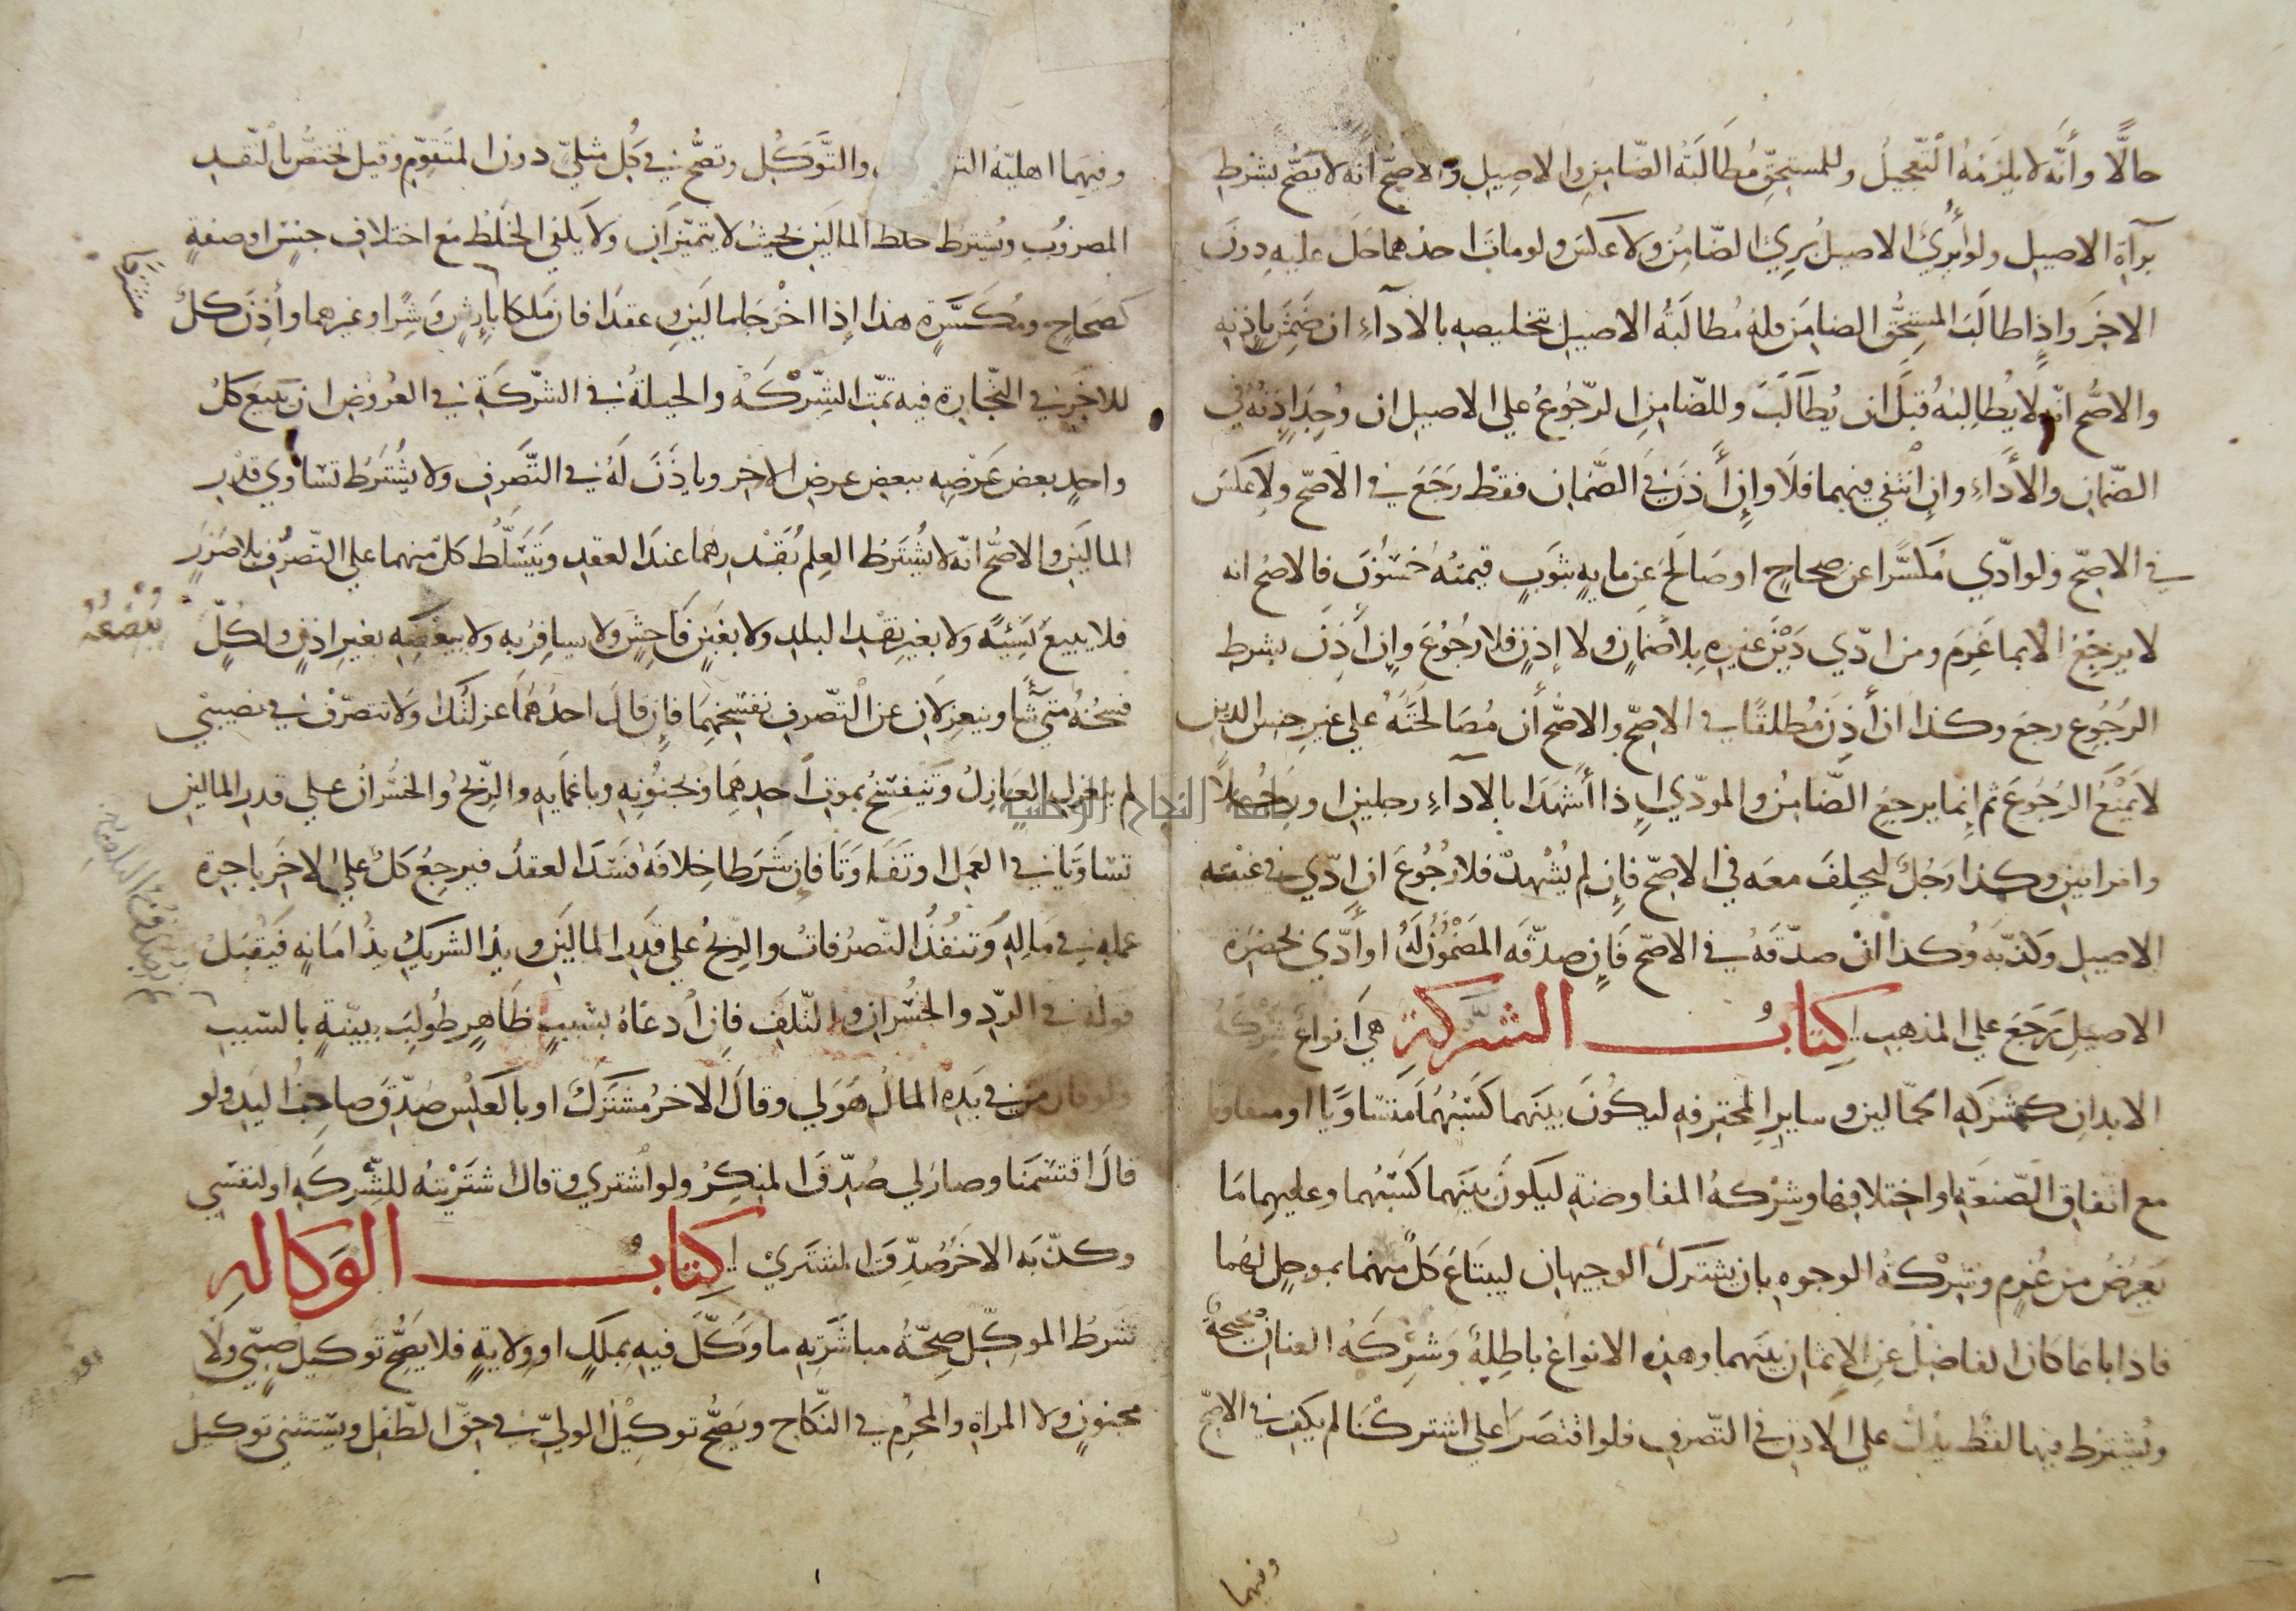 حالًّا وأنَّه لا يلزمُهُ التَّعجيلُ وللمستحِقِّ مُطَالَبَةُ الضّامِنِ والاصِيلِ والاصحّ انه لا يصَحُّ بشرْطِ
برآةِ الاصيل ولو أُبْرِئَ الاصيلُ بُرِئ الضّامِنُ ولا عَكسَ ولو ماتَ احدهما حَلَ عليهِ دونَ
الاخَرِ واذا طالَبَ المستحِقُّ الضامِنَ فله مُطالَبَةُ الاصيلِ بتخليصهِ بالادآءِ ان ضَمِنَ باِذنِهِ
والاصُّح انّه لا يُطالِبُهُ قَبْلَ انْ يُطَالَبَ وللضّامِنِ الرّجُوعُ علي الاصيلِ ان وُجِدَ اِذنُهُ في
الضّمانِ والأداءِ وانِ انْتفي فيهما فلَا وَإِنْ أَذِنَ في الضَّمان فقطْ رَجَعَ في الاصحّ ولا عَكسَ
في الاصحّ ولو ادّي مُكسَّرًا عن صِحاحٍ او صَالَحَ عن مايةٍ بثَوبٍ قيمتُهُ خمسُونَ فالاصحُ انه
لا يرجِعُ الا بما غَرِمَ ومن ادّي دَيْنَ غيرِهِ بلا ضَمانٍ ولا إذنٍ فلا رجُوعَ وإن أذِنَ بشرط
الرُجُوعِ رجع وكذا ان أذِنَ مُطلقًا في الاصحّ والاصحّ أن مُصَالَحَتَهُ علي غيرِ جنسِ الدينِ
لا تمْنَعُ الرجُوعَ ثم إنما يرجعُ الضّامِنُ والمودّي إذا أشهَدَا بالادآءِ رجلينِ او رَجُلًا
وامراتينِ وكذا رَجُلٌ ليحلِفَ معَه في الاصحّ فإن لم يُشْهِدْ فلا رُجُوعَ ان ادّي في غَيْبَةِ
الاصيلِ وكذّبَهُ وكذا انْ صدّقَهُ في الاصحّ فَإنْ صدّقَه المَضْمُونُ لَهُ او أدّي بحضْرَة
الاصيلِ رَجَعَ علي المذهب كِتابُ الشركةِ هيَ انواعٌ شِرْكَةُ
الابدانِ كشركةِ الحمّالين وسايرِ المحترفهِ ليكُونَ بينهما كَسْبُهُمَا متَسَاوِيًا او متفاوتا
مع اتّفاقِ الصّنعَةِ او اختلافِها وشِرْكةُ المفاوضةِ ليَكونَ بينَهما كَسْبُهما وعليهِما مَا
يَعرِضُ من غُرْمٍ وشِرْكةُ الوجوهِ بان يشتركَ الوجيهان ليبتَاعَ كلٌّ منهما بموجلٍ لهُما
فاذا باعا كانَ الفاضلُ عنِ الاثمانِ بينَهما وهذِه الانواعُ باطِلِةٌ وَشِرْكَةُ العنانِ صحيحةٌ
ويُشترط فيها لفظٌ يَدُلّ علي الاذنِ في التّصرفِ فلو اقتصَرَا علي اشتركْنا لم يكفِ في الاصحّ
وفيهما
وفيهما اهليّةُ التو والتَّوَكُّلِ وتصُّح في كُلِ مثليّ دونَ المتَقوِّمِ وقيلَ تختصُّ بالنّقدِ
المضروبِ ويُشترط خلط المالَينِ بحيثُ لا يتميّزَانِ ولا يَكفي الخَلْطُ مع اختلافِ جنسٍ اوصفةٍ
كصحَاحٍ ومُكَسَّرَةٍ هذا إذا اخْرجَا مالَينِ وعقدَا فان مَلكَا باِرْثٍ وَشِرًا وغيرهما وأذِنَ كلٌ
مشتركا
للاخَرِ في التّجَارة فيه تمّت الشّرْكَةُ والحيلةُ في الشّركَةِ في العُروُضِ ان يَبيعَ كلُ
واحدٍ بعض عَرْضِه ببعضِ عرضِ الاخر وياذَنَ لَهُ في التّصَرفِ ولا يُشْتَرَطُ تسَاوي قدْرِ
المالَينِ والاصحّ انّه لا يُشْتَرَطُ العِلم بقَدْرهما عندَ العقدِ ويَتَسَلّطُ كلّ منهما علي التّصرُّفِ بلا ضَررٍ
فلا يبيعُ نَسِيئةً ولا بغيرِ نقْدِ البلدِ ولا بغَبْنٍ فَاحِشٍ ولا يسافِرُ به ولا يبغضِهِ بغيرِ اذنٍ ولكُلّ
يُبْضِعُهُ
فسْخُهُ متي شَآ وينعزِلَانِ عن التّصرفِ بفسْخِهِمَا فإن قالَ احدُهُما عزلتُكَ ولا تتصرّفْ في نصيبي
لم ينعزلِ العَازِلُ وتنْفسخُ بموتِ احدِهِمَا وبجنُونِهِ وباغمآيِه والرّبحُ والخسْرانُ علي قدرِ المالَينِ
تسَاوَيَا في العَمَلِ او تَفَاوَتَا فإن شَرَطا خِلافَهُ فَسَدَ العقدُ فيرجِعُ كلٌ علي الاخَرِ باجرةِ
عملهِ في مَالِهِ وَتنفُذُ التّصرُفاتُ والرِبحُ علي قَدرِ المالَينِ ويدُ الشريكِ يدُ امَانةٍ فَيُقبَلُ
قولُهُ في الردّ والخسْرانِ والتّلفِ فإن ادعَاهُ بسَببٍ ظَاهِرٍ طُولِبَ ببيّنةٍ بالسّببِ
ولو قال من في يَدِه المالُ هُوَ لي وقالَ الاخرُ مُشتَركٌ او بالعَكْسِ صُدِّقَ صاحِبُ اليدِ ولو
قالَ اقتَسَمْنَا وصارَ لي صُدِّقَ المنكِرُ ولو اشتري وقالَ اشتَرَيْتُه للشّركَةِ او لنفسي
وكذّبَه الاخَرُ صُدِّقَ المشتَرِيْ كِتابُ الوَكالةِ
شَرطُ الموكّلِ صِحَّةُ مباشَرتِهِ ما وَكّلَ فيه بملْكٍ او ولايةٍ فلا يَصِحُّ توكيلُ صبيّ ولا
مجنونٍ ولا المراةِ والمحْرِمِ في النّكاح ويَصُّح توكيْلُ الوليّ في حقّ الطّفلِ ويُستَثني توكيلُ
جامعة النجاح الوطنية